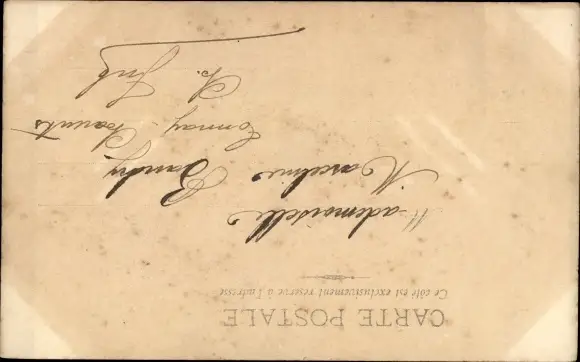 CARTE POSTALE
Ce côté est exclusivement réservé à l'adresse
Mademoiselle
Marceline Bandry
Tonnay-Charente
Ch. Inf.